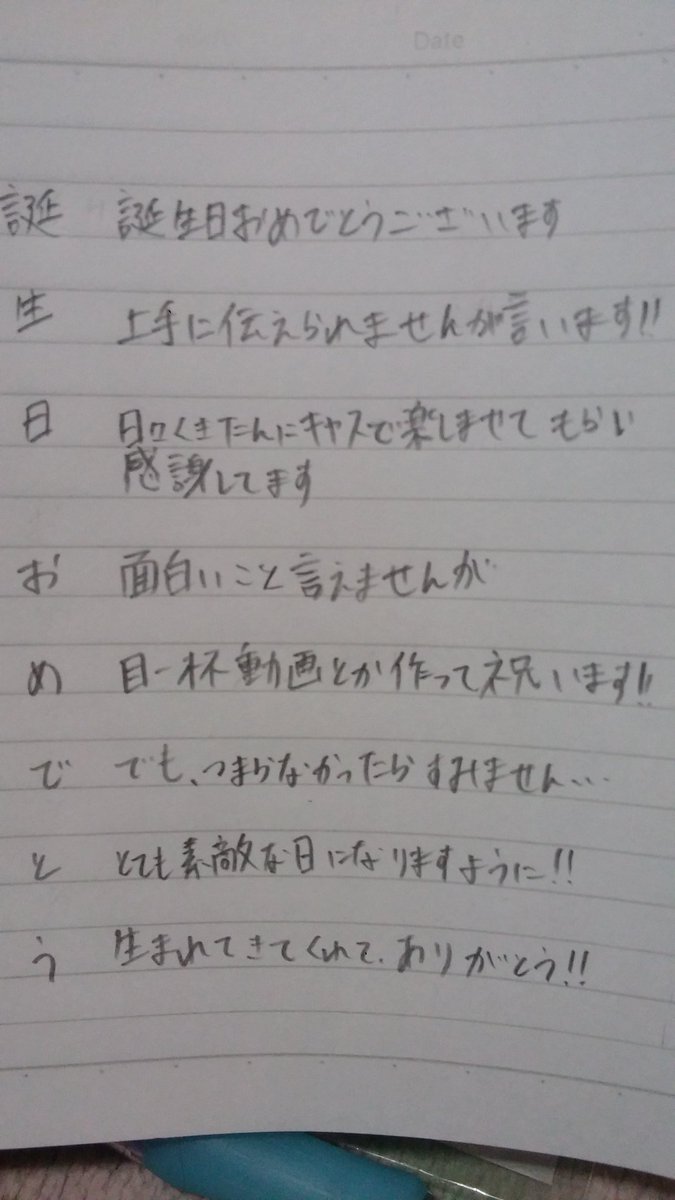 Date
誕 誕生日おめでとうございます
生 上手に伝えられませんが言います!!
日 日々くきたんにキャスで楽しませてもらい
感謝してます
お 面白いこと言えませんが
め 目一杯動画とか作って祝います!!
で でも、つまらなかったらすみません...
と とても素敵な日になりますように!!
う 生まれてきてくれて、ありがとう!!